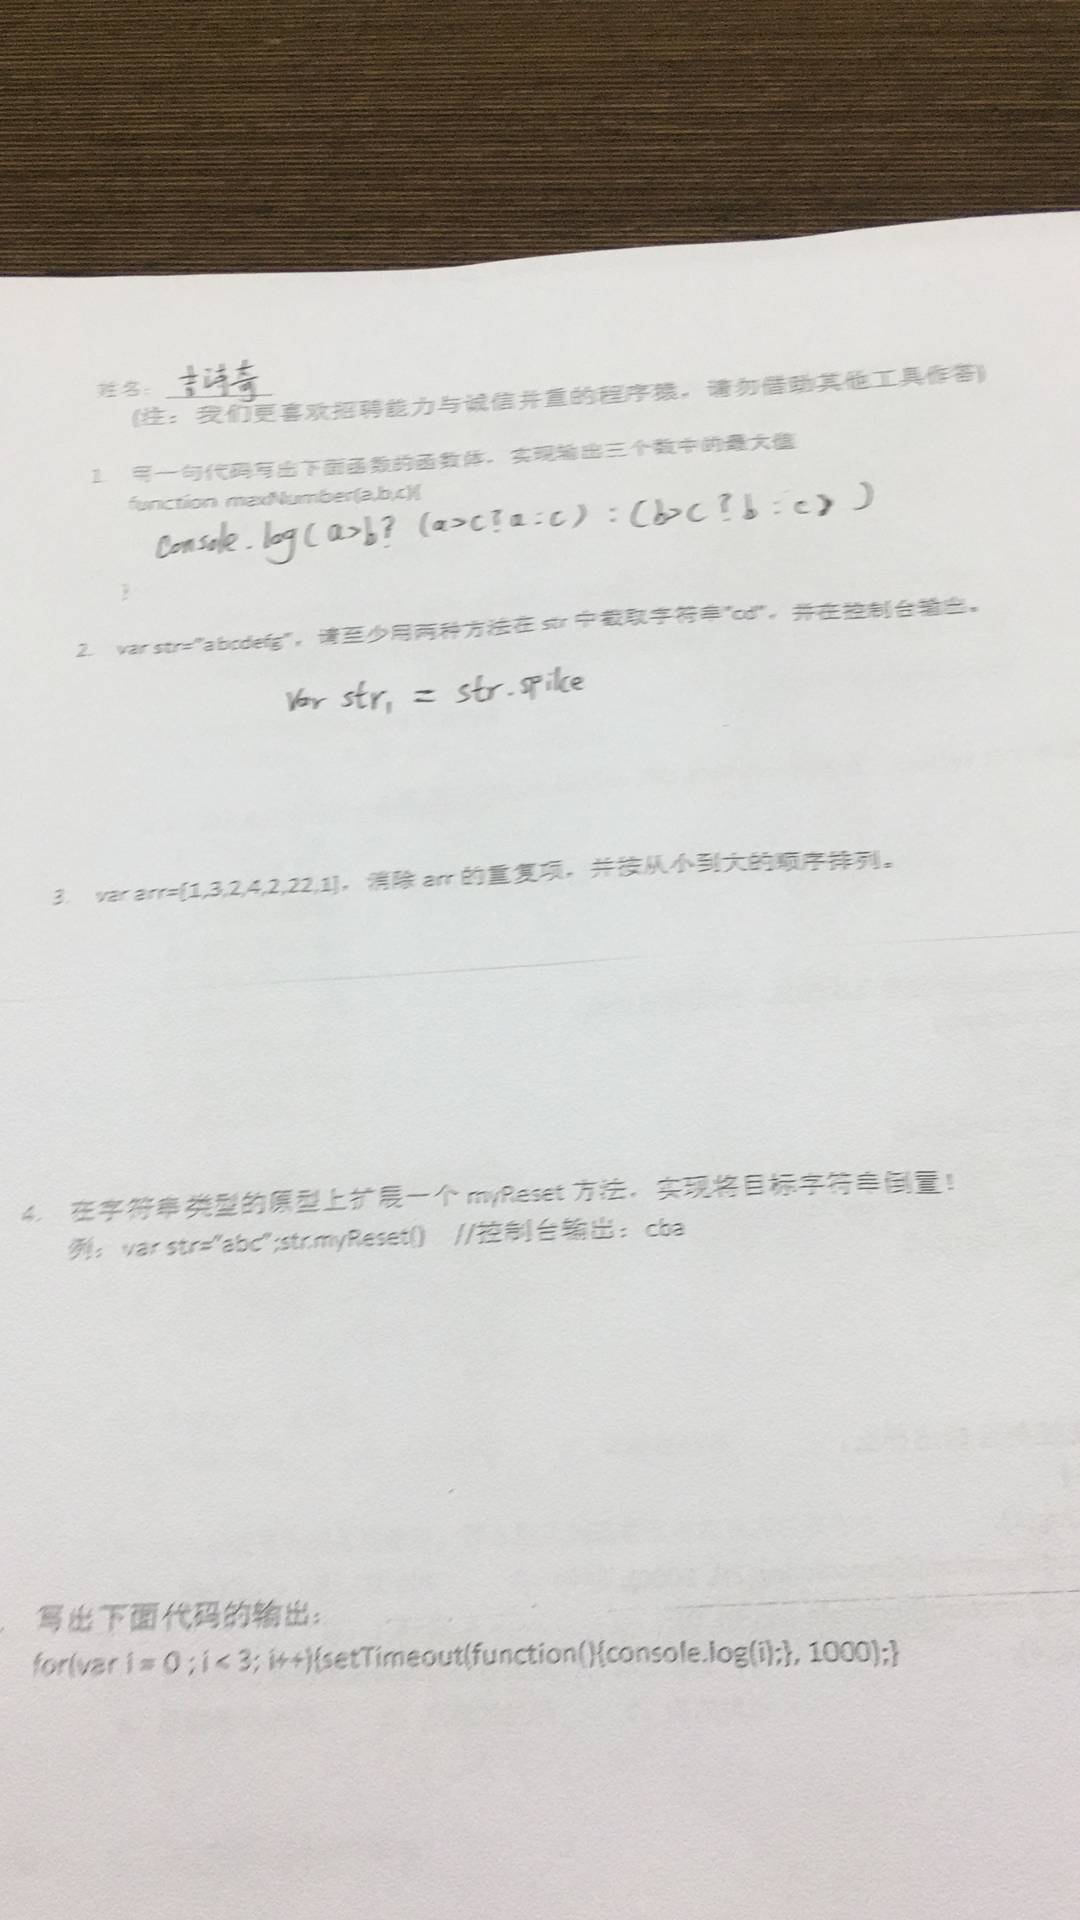 姓名：吉诗奇
(注：我们更喜欢招聘能力与诚信并重的程序猿，请勿借助其他工具作答)
1. 用一句代码写出下面函数的函数体，实现输出三个数中的最大值
function maxNumber(a,b,c){
console.log(a>b?(a>c?a:c):(b>c?b:c))
}
2. var str="abcdefg"，请至少用两种方法在 str 中截取字符串"cd"，并在控制台输出。
Var str1 = str.spike
3. var arr=[1,3,2,4,2,22,1]，清除 arr 的重复项，并按从小到大的顺序排列。
4. 在字符串类型的原型上扩展一个 myReset 方法，实现将目标字符串倒置！
例：var str="abc";str.myReset() //控制台输出：cba
写出下面代码的输出：
for(var i = 0 ; i < 3; i++){setTimeout(function(){console.log(i);}, 1000);}